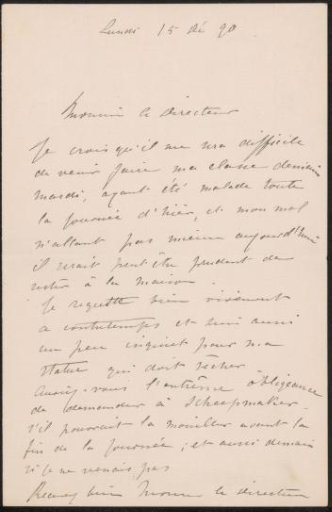 Lundi 15 Dé 90
Monsieur le Directeur
Je crois qu'il me sera difficile
de venir faire ma classe demain
mardi, ayant été malade toute
la journée d'hier, et mon mal
n'allant pas mieux aujourd'hui
il serait peut être prudent de
rester à la maison.
Je regrette bien vivement
ce contretemps et suis aussi
un peu inquiet pour ma
statue qui doit sécher
Auriez-vous l'extrême obligeance
de demander à Scheepmaker
s'il pourrait la mouiller avant la
fin de la journée, et aussi demain
si je ne venais pas
Recevez bien Monsieur le directeur